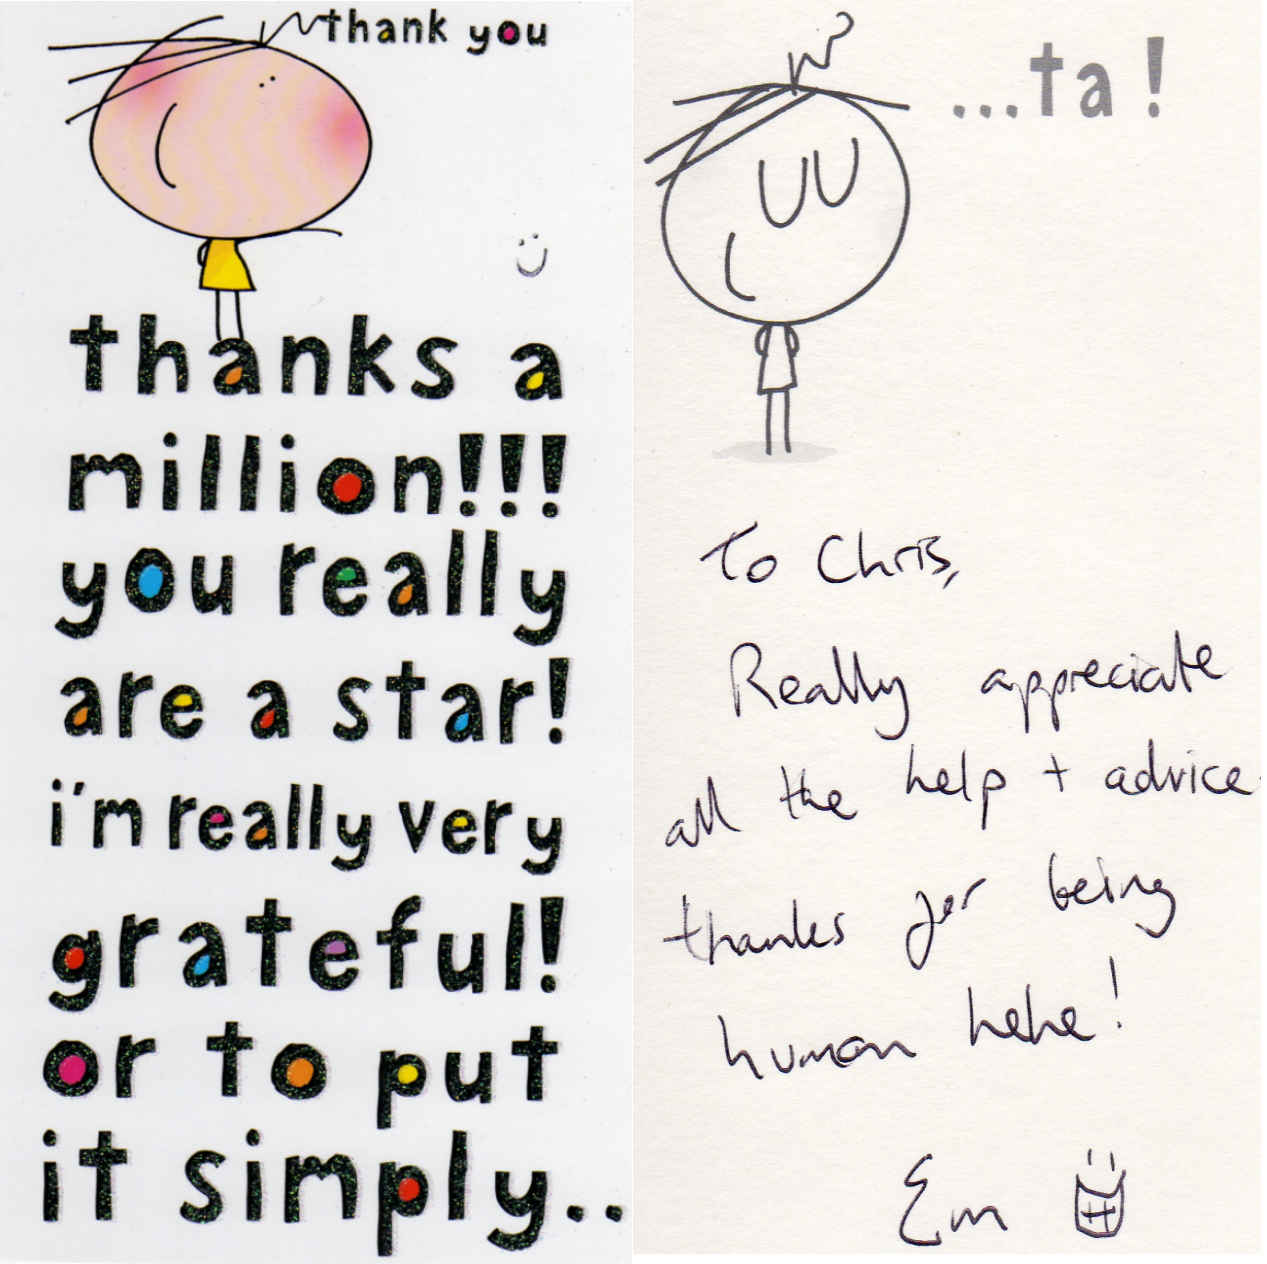 thank you
thanks a
million!!!
you really
are a star!
i'm really very
grateful!
or to put
it simply..
...ta!
To Chris,
Really appreciate
all the help + advice
thanks for being
human hehe!
Em